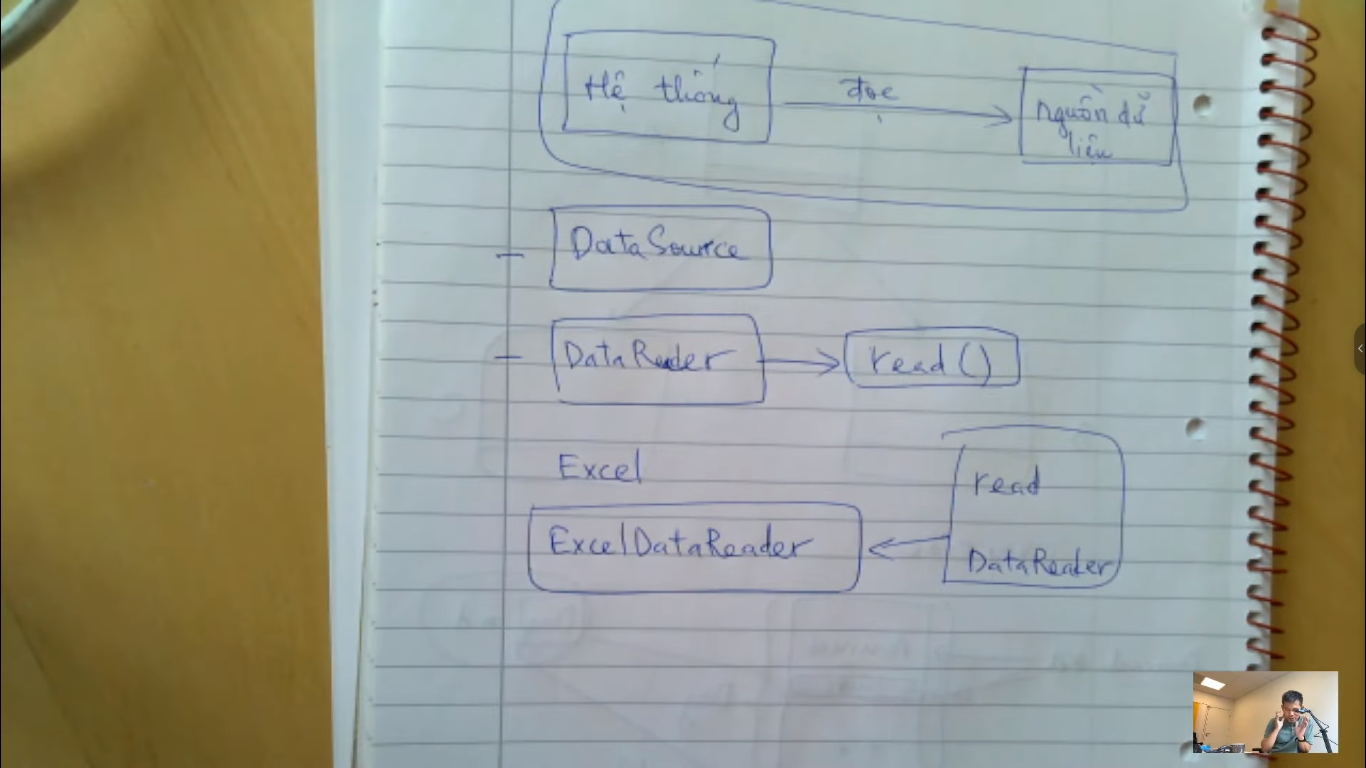 Hệ thống
đọc
nguồn dữ
liệu
DataSource
DataReader
read()
Excel
read
ExcelDataReader
DataReader